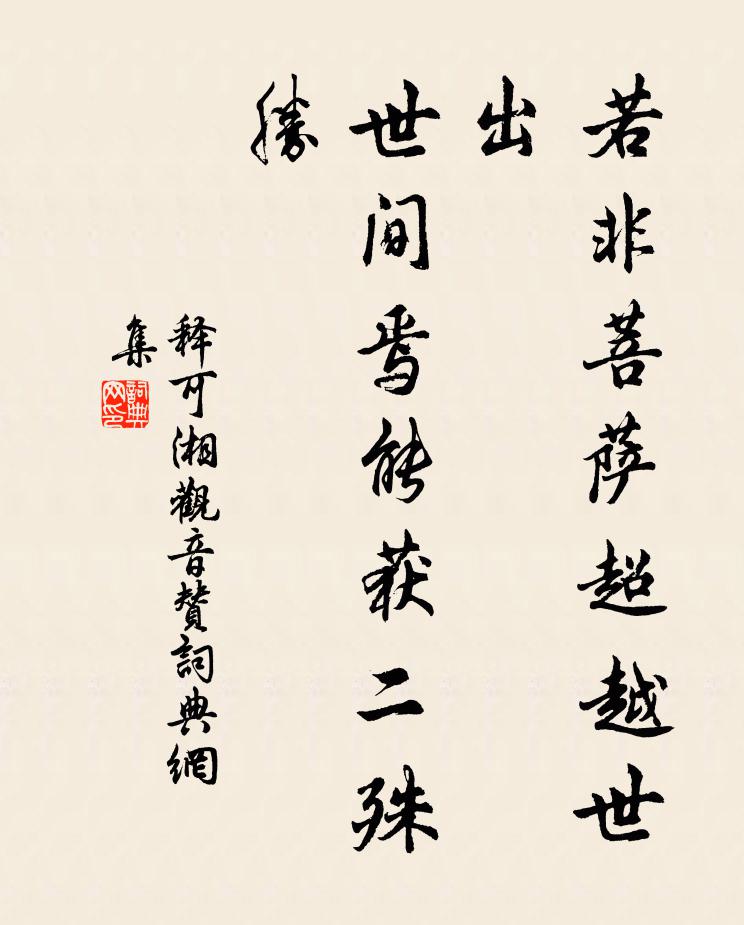 若非菩萨超越世
出
世间焉能获二殊
勝
释可湘觀音賛詞典網
集
詞典
网印